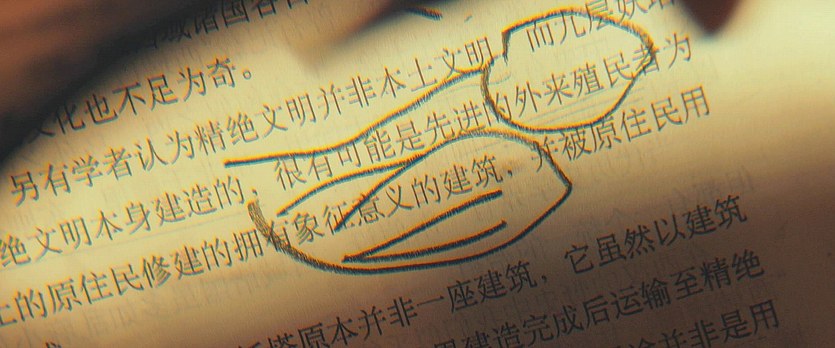 西域诸国各自
文化也不足为奇。
另有学者认为精绝文明并非本土文明，而九层妖塔
绝文明本身建造的，很有可能是先进的外来殖民者为
土的原住民修建的拥有象征意义的建筑，并被原住民用
妖塔原本并非一座建筑，它虽然以建筑
建造完成后运输至精绝
并非是用